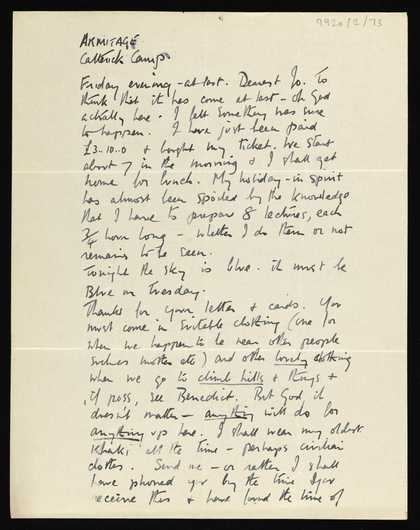 7920/2/73
ARMITAGE
Catterick Camp
Friday evening - at last. Dearest Jo. To
think that it has come at last - oh God
actually here. I felt something was sure
to happen. I have just been paid
£3-10.0 & bought my ticket. We start
about 7 in the morning & I shall get
home for lunch. My holiday - in spirit
has almost been spoiled by the knowledge
that I have to prepare 8 lectures, each
3/4 hour long - whether I do them or not
remains to be seen.
Tonight the sky is blue. it must be
Blue on Tuesday.
Thanks for your letter & cards. You
must come in suitable clothing (one for
when we happen to be near other people
such as mother etc) and other lovely clothing
when we go to climb hills & things &
if poss, see Benedict. But God, it
doesn't matter - anything will do for
anything up here. I shall wear my oldest
Khaki all the time - perhaps civilian
clothes. Send me - or rather I shall
have phoned you by the time you
receive this & have found the time of